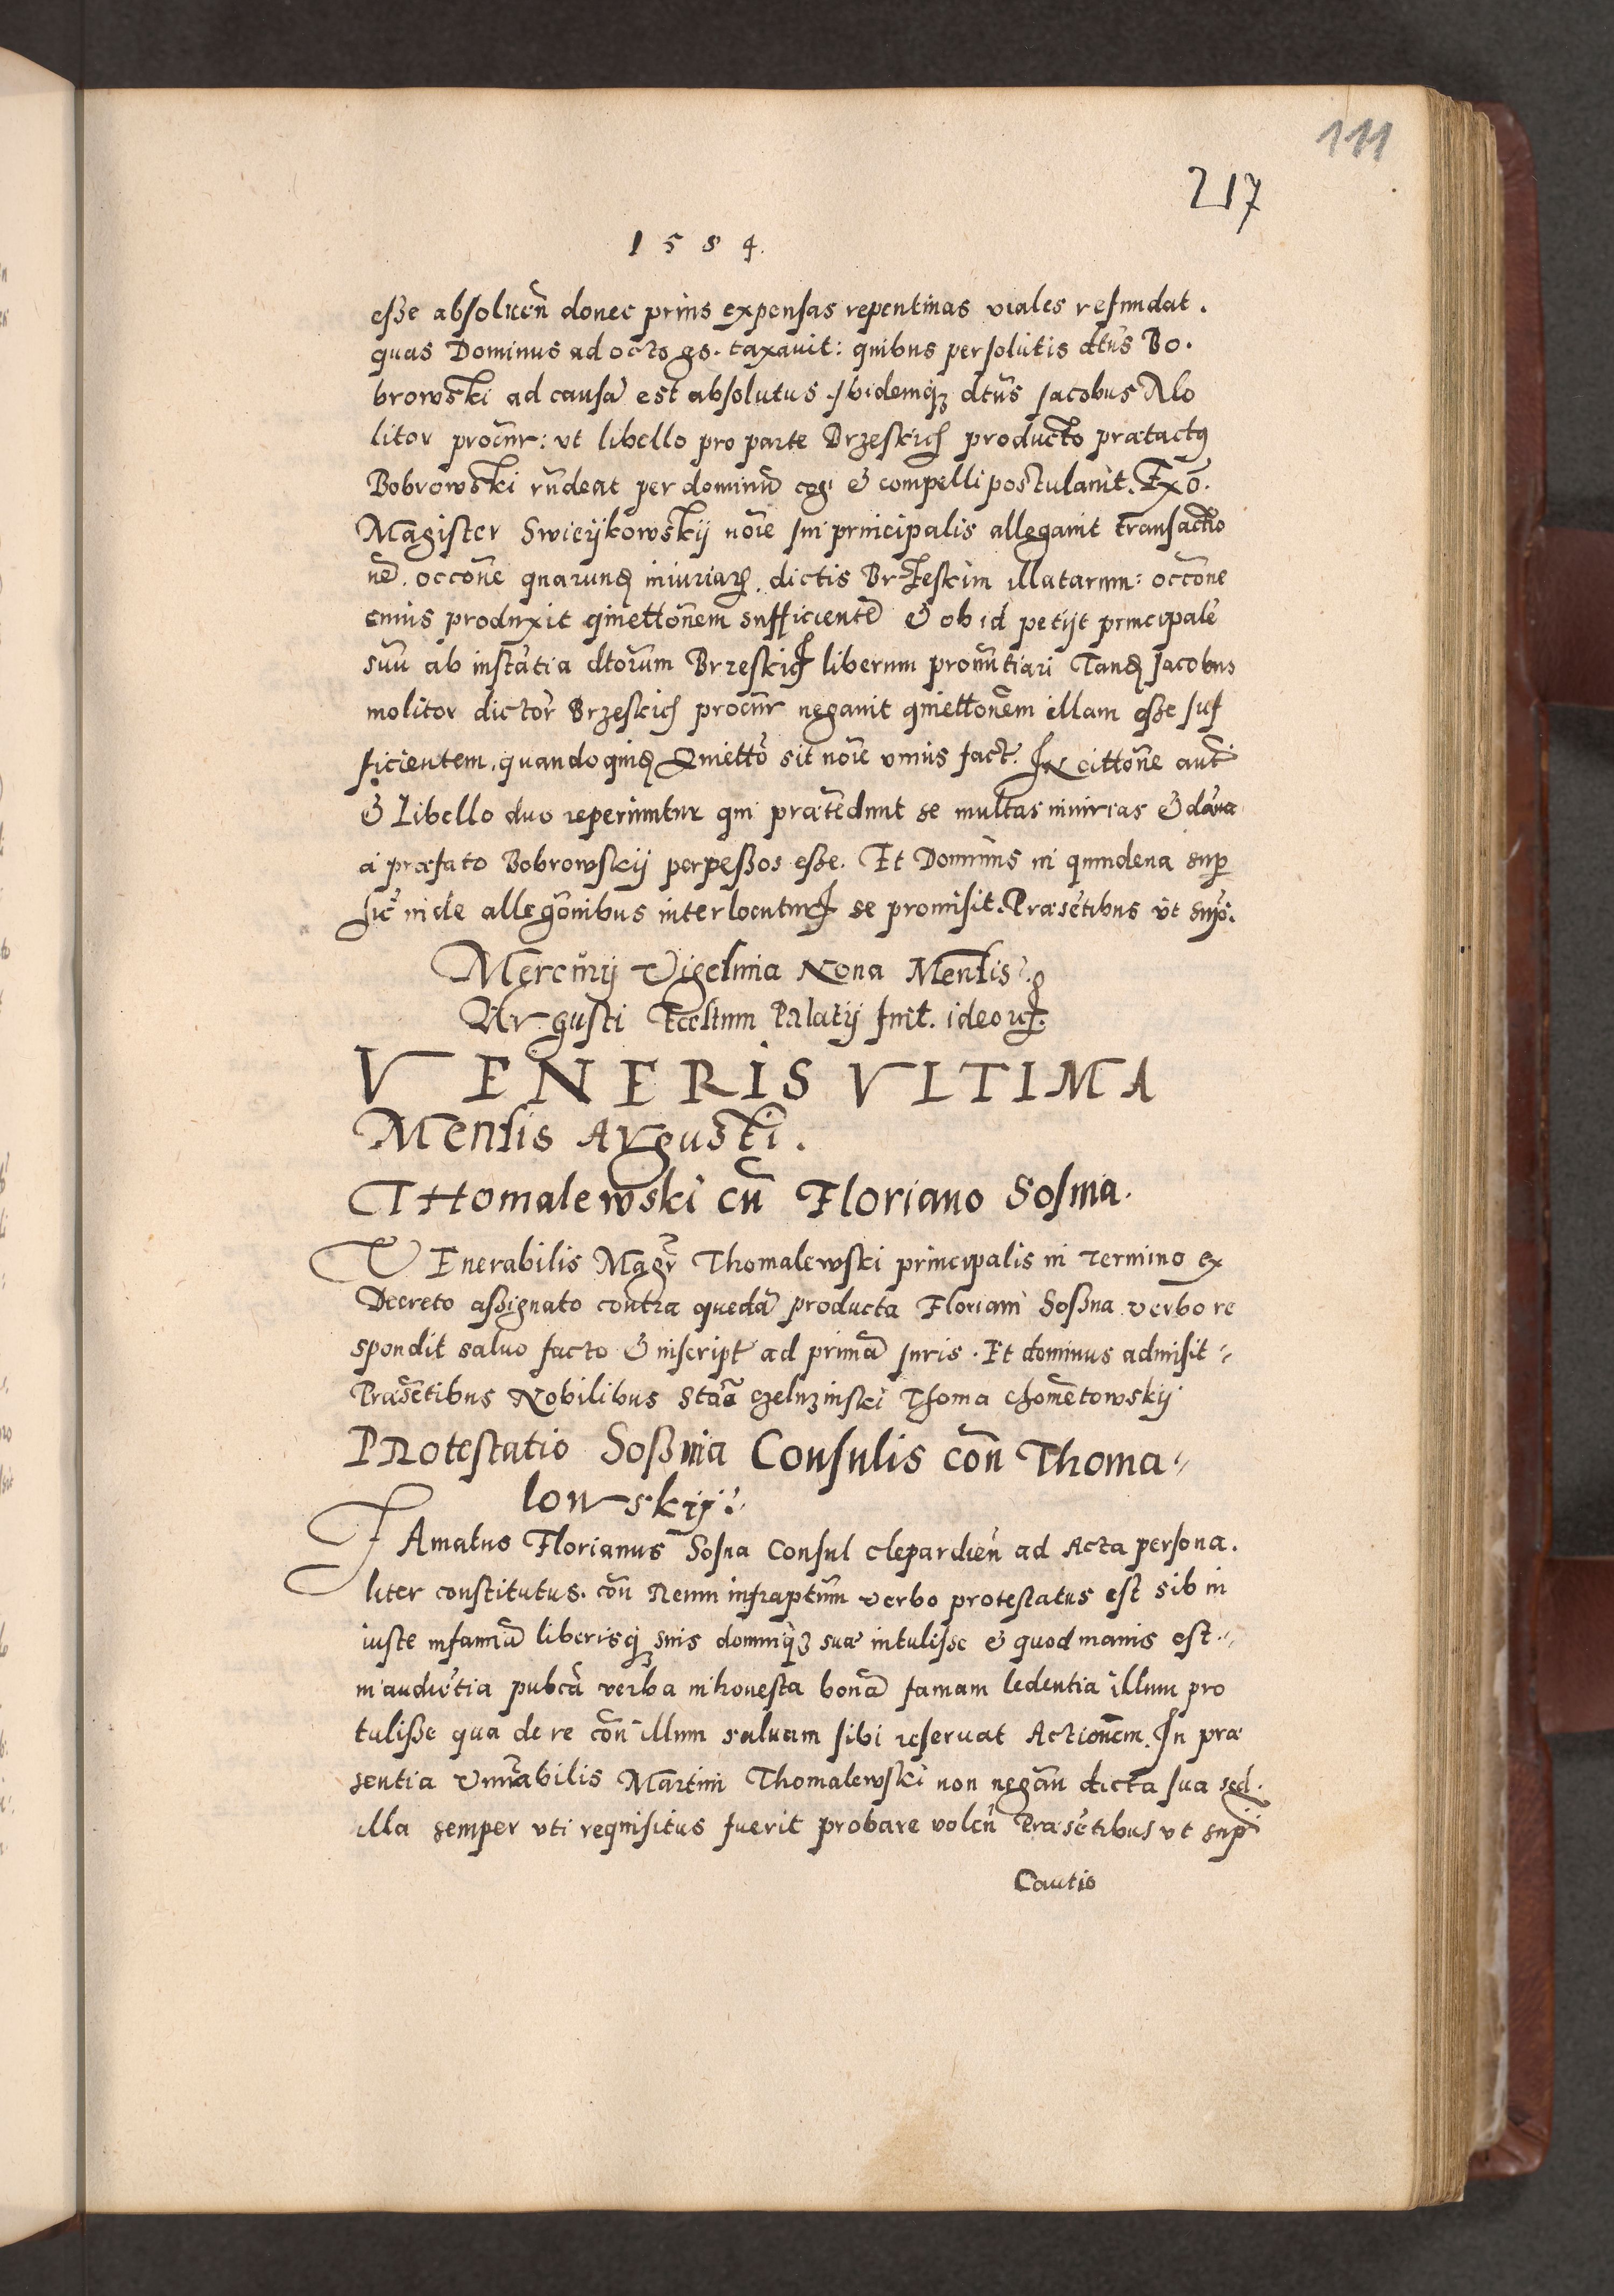 111
217
1584.
esse absoluen̄ donec prius expensas repentinas viales refundat.
quas Dominus ad octo gs. taxauit: quibus persolutis dtūs Bo.
browski ad causā est absolutus. Ibidemq₃ dtūs Jacobus Mo
litor procūr: vt libello pro parte Brzeskich producto prætactꝰ
Bobrowski rn̄deat per dominū cog: & compelli postulauit. Ex o.
Magister Swieijkowskij noīe sui principalis allegauit transactio
nē. occōne quarund iniuriarꝝ dictis Brzeskim illatarum: occōne
cuius produxit quiettōnem sufficientē & ob id petijt principalē
suū ab instātia dtorūm Brzeskich liberum pronūtiari Tandē Jacobus
molitor dictor̄ Brzeskich procūr negauit quiettōnem illam esse suf
ficientem, quandoquid Quiettō sit noīe vnius fact. In cittōne aut̄
& Libello duo reperiuntur qui prætēdunt se multas iniurias & dāna
a præfato Bobrowskij perpessos esse. Et Dominus in quindena sup
hīc inde allegōnibus interlocutur se promisit. Præsētibus vt sup̄.
Mercurij Vigesima Nona Mensis
Augusti Festum Palatij fuit. ideo
VENERIS VLTIMA
Mensis Augusti.
Thomalewski cū Floriano Sosnia.
Venerabilis Magr̄ Thomalewski principalis in termino ex
Decreto assignato contra quedā producta Floriani Sosna verbo re
spondit saluo facto & inscript ad primā Iuris. Et dominus admisit
Præsētibus Nobilibus Stāo Czeluzinski Thoma Chomētowskij
Protestatio Sosnia Consulis cōn Thoma
lowskij.
Famatus Florianus Sosna Consul Clepardień ad Acta persona.
liter constitutus. cōn Reum infraptūm verbo protestatus est sib in
iuste infamiā liberisq₃ suis domuiq₃ suæ intulisse & quod maius est
in audiētia pubcā verba inhonesta bonā famam ledentia illum pro
tulisse qua de re cōn illum saluam sibi reseruat Actionēm. In præ
sentia Vnnrabilis Martini Thomalewski non negān dicta sua sed.
illa semper vti requisitus fuerit probare volēn Præsētibus vt sup̄
Cautio